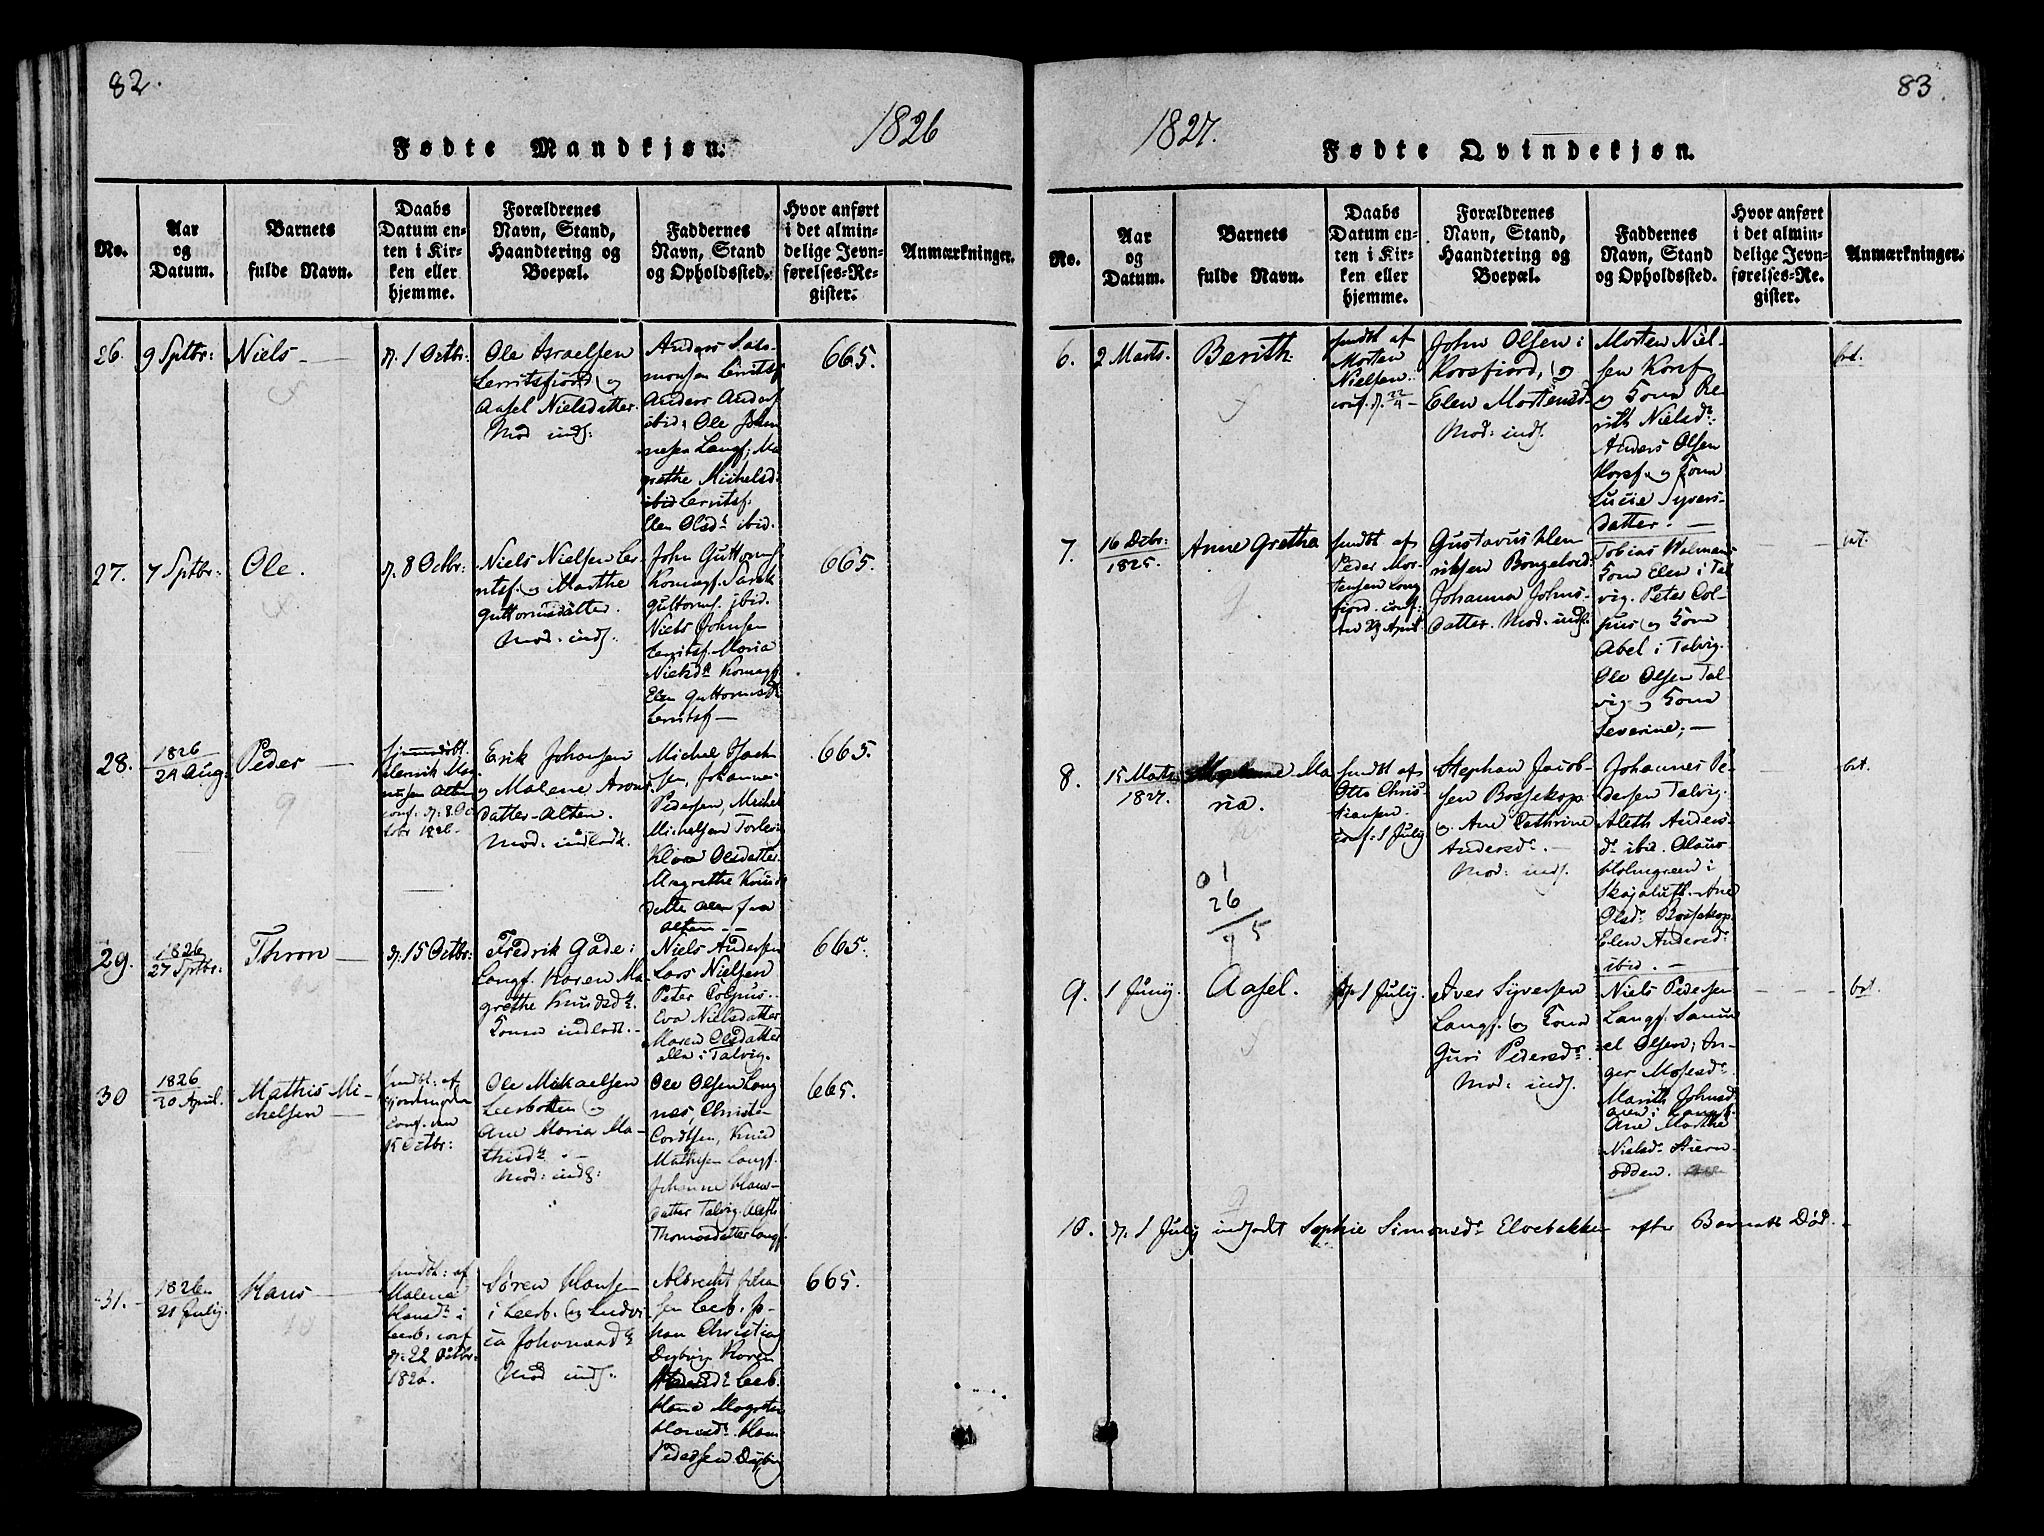 82.
1826
Fødte Mandkjøn.
No.
Aar
og
Datum.
Barnets
fulde Navn.
Daabs
Datum en-
ten i Kir-
ken eller
hjemme.
Forældrenes
Navn, Stand,
Haandtering og
Boepæl.
Faddernes
Navn, Stand
og Opholdssted.
Hvor anført
i det almin-
delige Jevn-
førelses-Re-
gister.
Anmærkninger.
26.
9 Sptbr:
Niels
d. 1 Octbr:
Ole Israelsen
Lerritsfiord og
Aasel Nielsdatter.
Mod: inds:
Anders
Lerritsf
Anders Anders
ibid; Ole Johan
nesen Langf; Ma
grethe Michelsd:
ibid Lerritsf.
Elen Olsdr ibid.
665.
27.
7 Sptbr:
Ole.
d. 8 Octbr:
Niels Nielsen Ler
ritsf. og Marthe
Guttormsdatter.
Mod: inds:
John Guttorms
Komagf.
Guttormsf. ibid.
Niels Johnsen
Lerritsf. Maria
Nielsdr Komagf
Elen Guttormsdr
Lerritsf —
665.
28.
1826
24 Aug:
Peder
Henrik Mag
nusen Alten
conf. d. 8 Oc
tbr 1826.
Erik Johansen
og Malene Arons
datter Alten.
Mod: indledt.
Michel Isach
sen, Johannes
Pedersen, Michel
Michelsen
Klara Olsdatter
Magrethe Knuds
datter alle fra
Alten —
665.
29.
1826
27 Sptbr:
Thron
d. 15 Octbr:
Fredrik Gåde:
Langf. Karen Ma
grethe Knudsdr.
Kona indledt. —
Niels Andersen
Lars Nielsen
Peter Colpus.
Eva Nielsdatter
Maren Olsdatter
alle i Talvig.
665.
30
1826
20 April.
Mathis Mi-
chelsen
hmdt: af
conf. den
15 Octbr:
Ole Mikaelsen
Leerbotten og
Ane Maria Ma-
thisdr. —
Mod: inds:
Ole Olsen Lang
næs, Christen
Cordtsen, Knud
Mathisen Langf.
Johanne Hans-
datter Talvig. Aleth
Thomasdatter Langf.
665.
31.
1826
21 Julij.
Hans
hmdt: af
Malene
Hansdr i
Leerb: conf
d: 22 Octbr:
1826.
Søren Hansen
i Leerb. og Ludvi
ca Johannesdr
Mod inds.
Albrecht Johan
sen Leerb. Jo-
han Christian
Dybvig Karen
Leerb.
Hane Magrete
Hansdr. Hans
Pedersen Dybvig
665.
83.
1827.
Fødte Qvindekjøn.
No.
Aar
og
Datum.
Barnets
fulde Navn.
Daabs
Datum en-
ten i Kir-
ken eller
hjemme.
Forældrenes
Navn, Stand,
Haandtering og
Boepæl.
Faddernes
Navn, Stand
og Opholdssted.
Hvor anført
i det almin-
delige Jevn-
førelses-Re-
gister.
Anmærkninger.
6.
2 Marts.
Berith
hmdt af
Morten
Nielsen.
conf. d. 22/4 -
John Olsen i
Korsfiord, og
Elen Mortensd-
Mod: inds.
Morten Niel-
sen Korsf
og Kona Be-
rith Nielsdr:
Anders Olsen
Korsf. og Kona
Lucie Syvers-
datter. —
7.
16 Dcbr:
1825.
Anne Gretha
hmdt af
Peder Mor-
tensen Lang
fiord. conf:
den 29 April
Gustavus Hen
riksen Bongelvd:
Johanna Johns-
datter. Mod: inds.
Tobias Walmans
Kona Elen i Tal
vig. Peter Col-
pus og Kona
Abel i Talvig.
Ole Olsen Tal-
vig. og Kona
Severine; —
8.
15 Marts
1827.
Ma
ria.
hmdt af
Otto Chris-
tiansen.
conf: 1 July
Stephan Jacob-
sen Bossekop
og Ane Cathrine
Andersdr. —
Mod: inds.
Johannes Pe-
dersen Talvig.
Aleth Anders-
dr ibid. Olaus
Holmgreen i
Skojaluft. Ane
Olsdr Bossekop.
Elen Andersdr:
ibid. —
01
26
9/5
9.
1 Junij.
Aasel.
d. 1 Julij.
Iver Syversen
Langf. og Kona
Guri Pedersdr.
Mod: inds.
Niels Pedersen
Langf. Samu
el Olsen; In-
ger Mosesdr.
Marith Johnsd
Ane Marthe
Nielsdr. Stiern-
odden.
10.
d. 1 Julij indledt Sophie Simonsdr Elvebakken efter Barnets Død.